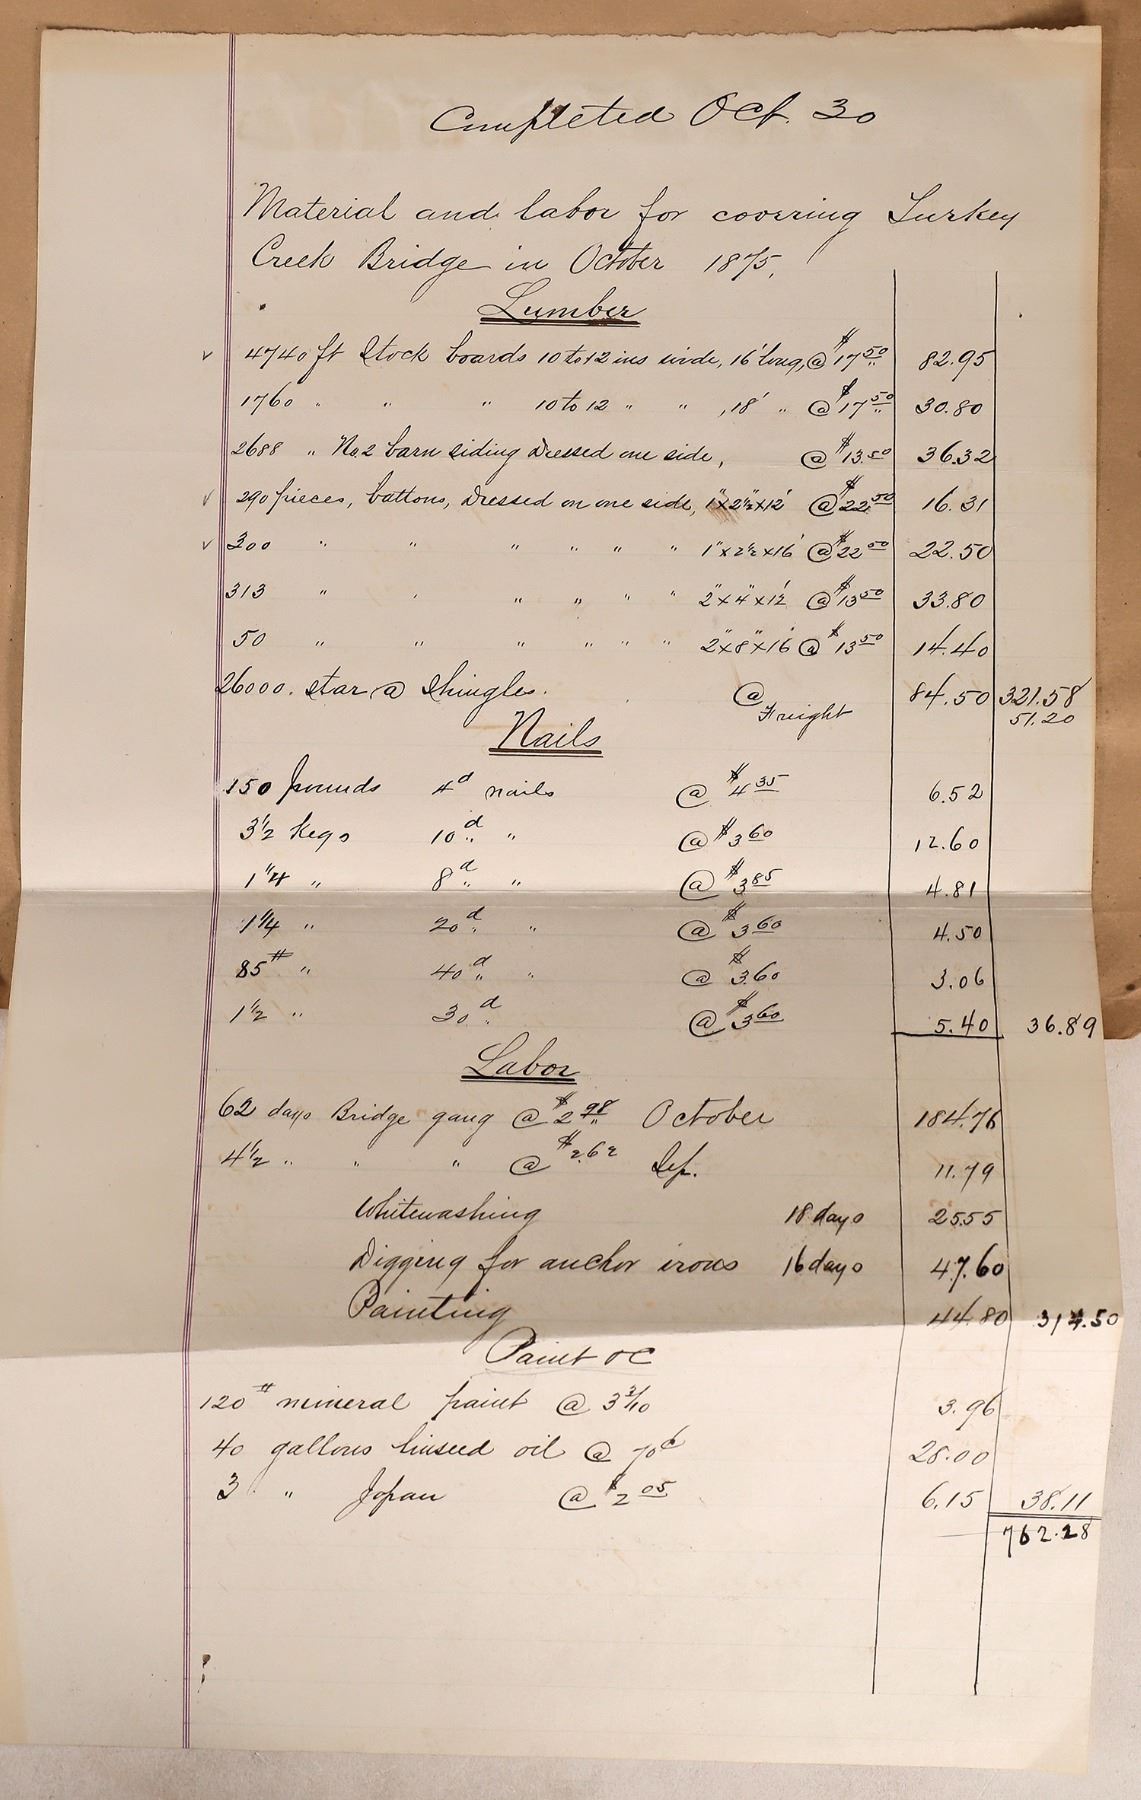 Completed Oct. 30
Material and labor for covering Turkey
Creek Bridge in October 1875.
Lumber
√ 4740 ft Stock boards 10 to 12 ins wide, 16' long, @ $17 50 82.95
1760 " " " 10 to 12 " " , 18' " @ $17 50 30.80
2688 " No 2 barn siding Dressed one side, @ $13.50 36.32
√ 290 pieces, battons, Dressed on one side, 1"x2½"x12' @ $22 50 16.31
√ 300 " " " " " " 1"x2½x16' @ $22 50 22.50
313 " " " " " " 2"x4"x12' @ $13 50 33.80
50 " " " " " " 2"x8"x16' @ $13 50 14.40
26000. Star @ Shingles. @ 84.50 321.58
Freight 51.20
Nails
150 pounds 4d nails @ $4 35 6.52
3½ Kegs 10d " " @ $3 60 12.60
1¼ " 8d " " @ $3 85 4.81
1¼ " 20d " " @ $3 60 4.50
85# " 40d " " @ $3.60 3.06
1½ " 30d " @ $3 60 5.40 36.89
Labor
62 days Bridge gang @ $2 98 October 184.76
4½ " " " @ $2.62 Sep. 11.79
Whitewashing 18 days 25.55
Digging for anchor irons 16 days 47.60
Painting 44.80 314.50
Paint &c
120# mineral paint @ 3 3/10 3.96
40 gallons linseed oil @ 70c 28.00
3 " Japan @ $2 05 6.15 38.11
762.28